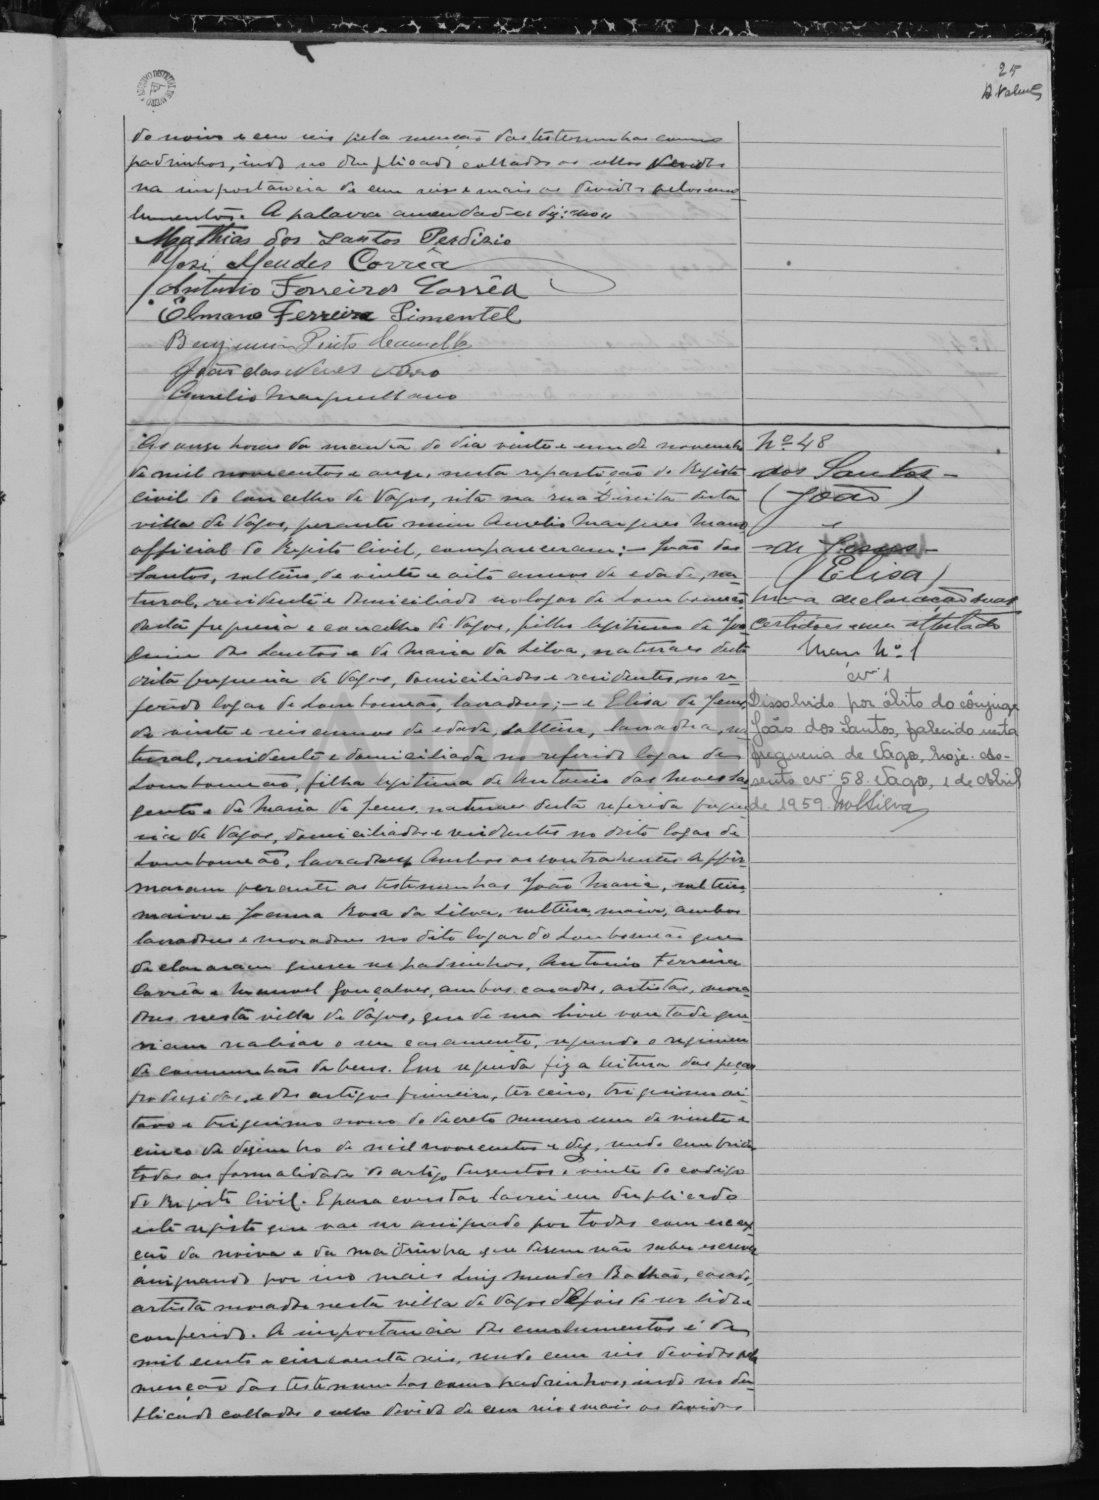 25
do noivo e cem reis pela menção das testemunhas como
padrinhos, indo no duplicado collados os sellos devidos
na importancia de cem reis e mais os devidos pelos emo
lumentos. A palavra amendada diz:
Mathias dos Santos Perdizio
José Mendes Corrêa
Antonio Ferreira Corrêa
Elmano Ferreira Pimentel
Benjamim Pinto
João das Neves
Aurelio Marques Mano
Às onze horas da manhã do dia vinte e um de novembro
de mil novecentos e onze, nesta repartição do Registo
Civil do concelho de Vagos, sita na rua Direita desta
villa de Vagos, perante mim Aurelio Marques Mano
official do Registo Civil, compareceram: — João dos
Santos, solteiro, de vinte e oito annos de edade, na-
tural, residente e domiciliado no logar de Lombomeão
desta freguesia e concelho de Vagos, filho legitimo de Joa
quim dos Santos e de Maria da Silva, naturaes desta
dita freguesia de Vagos, domiciliados e residentes no re-
ferido logar de Lombomeão, lavradores; — e Elisa de Jesus
de vinte e seis annos de edade, solteira, lavradora, na
tural, residente e domiciliada no referido logar de
Lombomeão, filha legitima de Antonio das Neves Sar
gento e de Maria de Jesus, naturaes desta referida fregue
sia de Vagos, domiciliados e residentes no dito logar de
Lombomeão, lavradores. Ambos os contrahentes affir-
maram perante as testemunhas João Maria, solteiro,
maior e Joanna Rosa da Silva, solteira, maior, ambos
lavradores e moradores no dito logar do Lombomeão que
declararam querer ser padrinhos, Antonio Ferreira
Corrêa e Manoel Gonçalves, ambos casados, artistas, mora
dores nesta villa de Vagos, que de sua livre vontade que-
riam realisar o seu casamento, segundo o regimen
da communhão de bens. Em seguida fiz a leitura das peças
produzidas e dos artigos primeiro, terceiro, trigesimo oi-
tavo e trigesimo nono do decreto numero um de vinte e
cinco de dezembro de mil novecentos e dez, sendo cumpridas
todas as formalidades do artigo duzentos e vinte do codigo
do Registo Civil. E para constar lavrei em duplicado
este registo que vae ser assignado por todos com excep-
ção da noiva e da madrinha que dizem não saber escrever
assignando por isso mais Luiz Mendes Bolhão, casado,
artista morador nesta villa de Vagos depois de ser lido e
conferido. A importancia dos emolumentos é de
mil cento e cincoenta reis, sendo cem reis devidos pela
menção das testemunhas como padrinhos, indo no du-
plicado collados o sello devido de cem reis e mais os devidos
Nº 48
dos Santos —
(João)
e
de Jesus —
(Elisa)
Uma declaração duas
certidões e um attestado
Maço Nº 1
cv 1
Dissolvido por óbito do cônjuge
João dos Santos, falecido nesta
freguesia de Vagos, hoje. As-
sento nº 58. Vagos, 1 de Abril
de 1959.